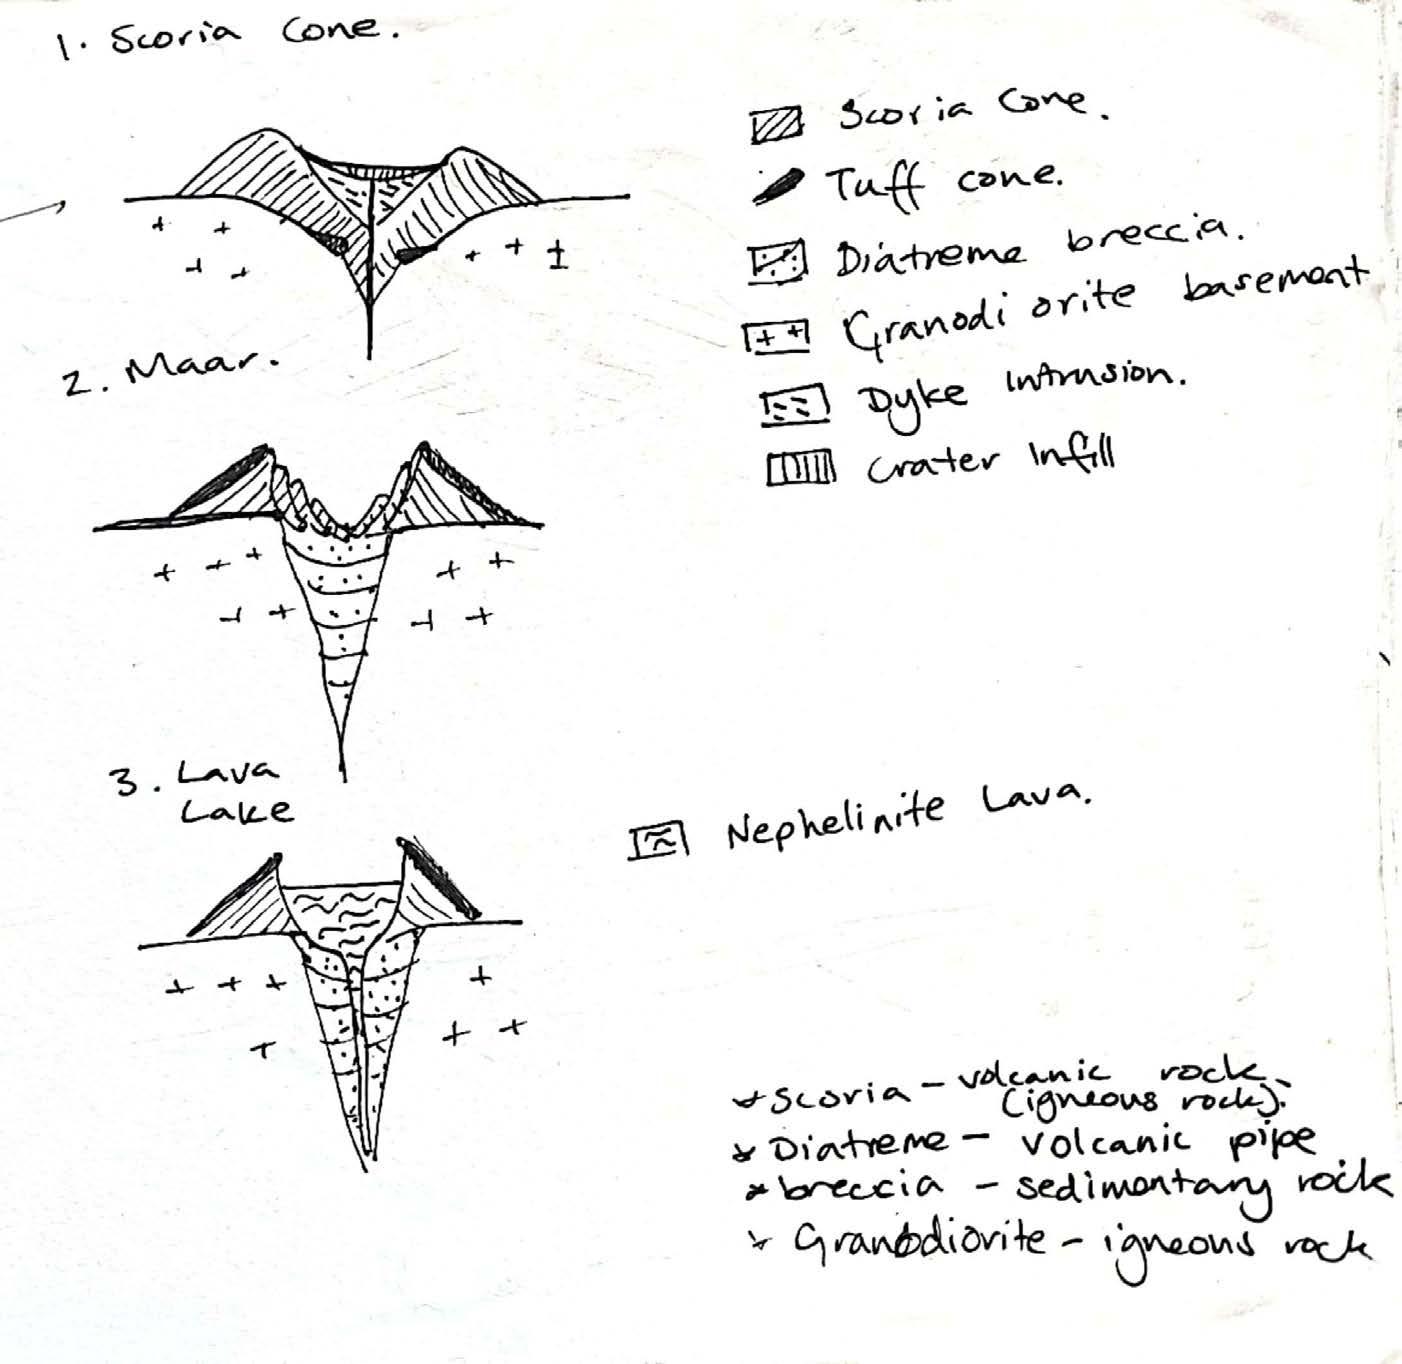 1. Scoria Cone.
Scoria Cone.
Tuff cone.
Diatreme breccia.
Granodiorite basement
Dyke Intrusion.
Crater Infill
2. Maar.
3. Lava
Lake
Nephelinite Lava.
* Scoria - volcanic rock
(igneous rock).
* Diatreme - volcanic pipe
* breccia - sedimentary rock
* Granodiorite - igneous rock